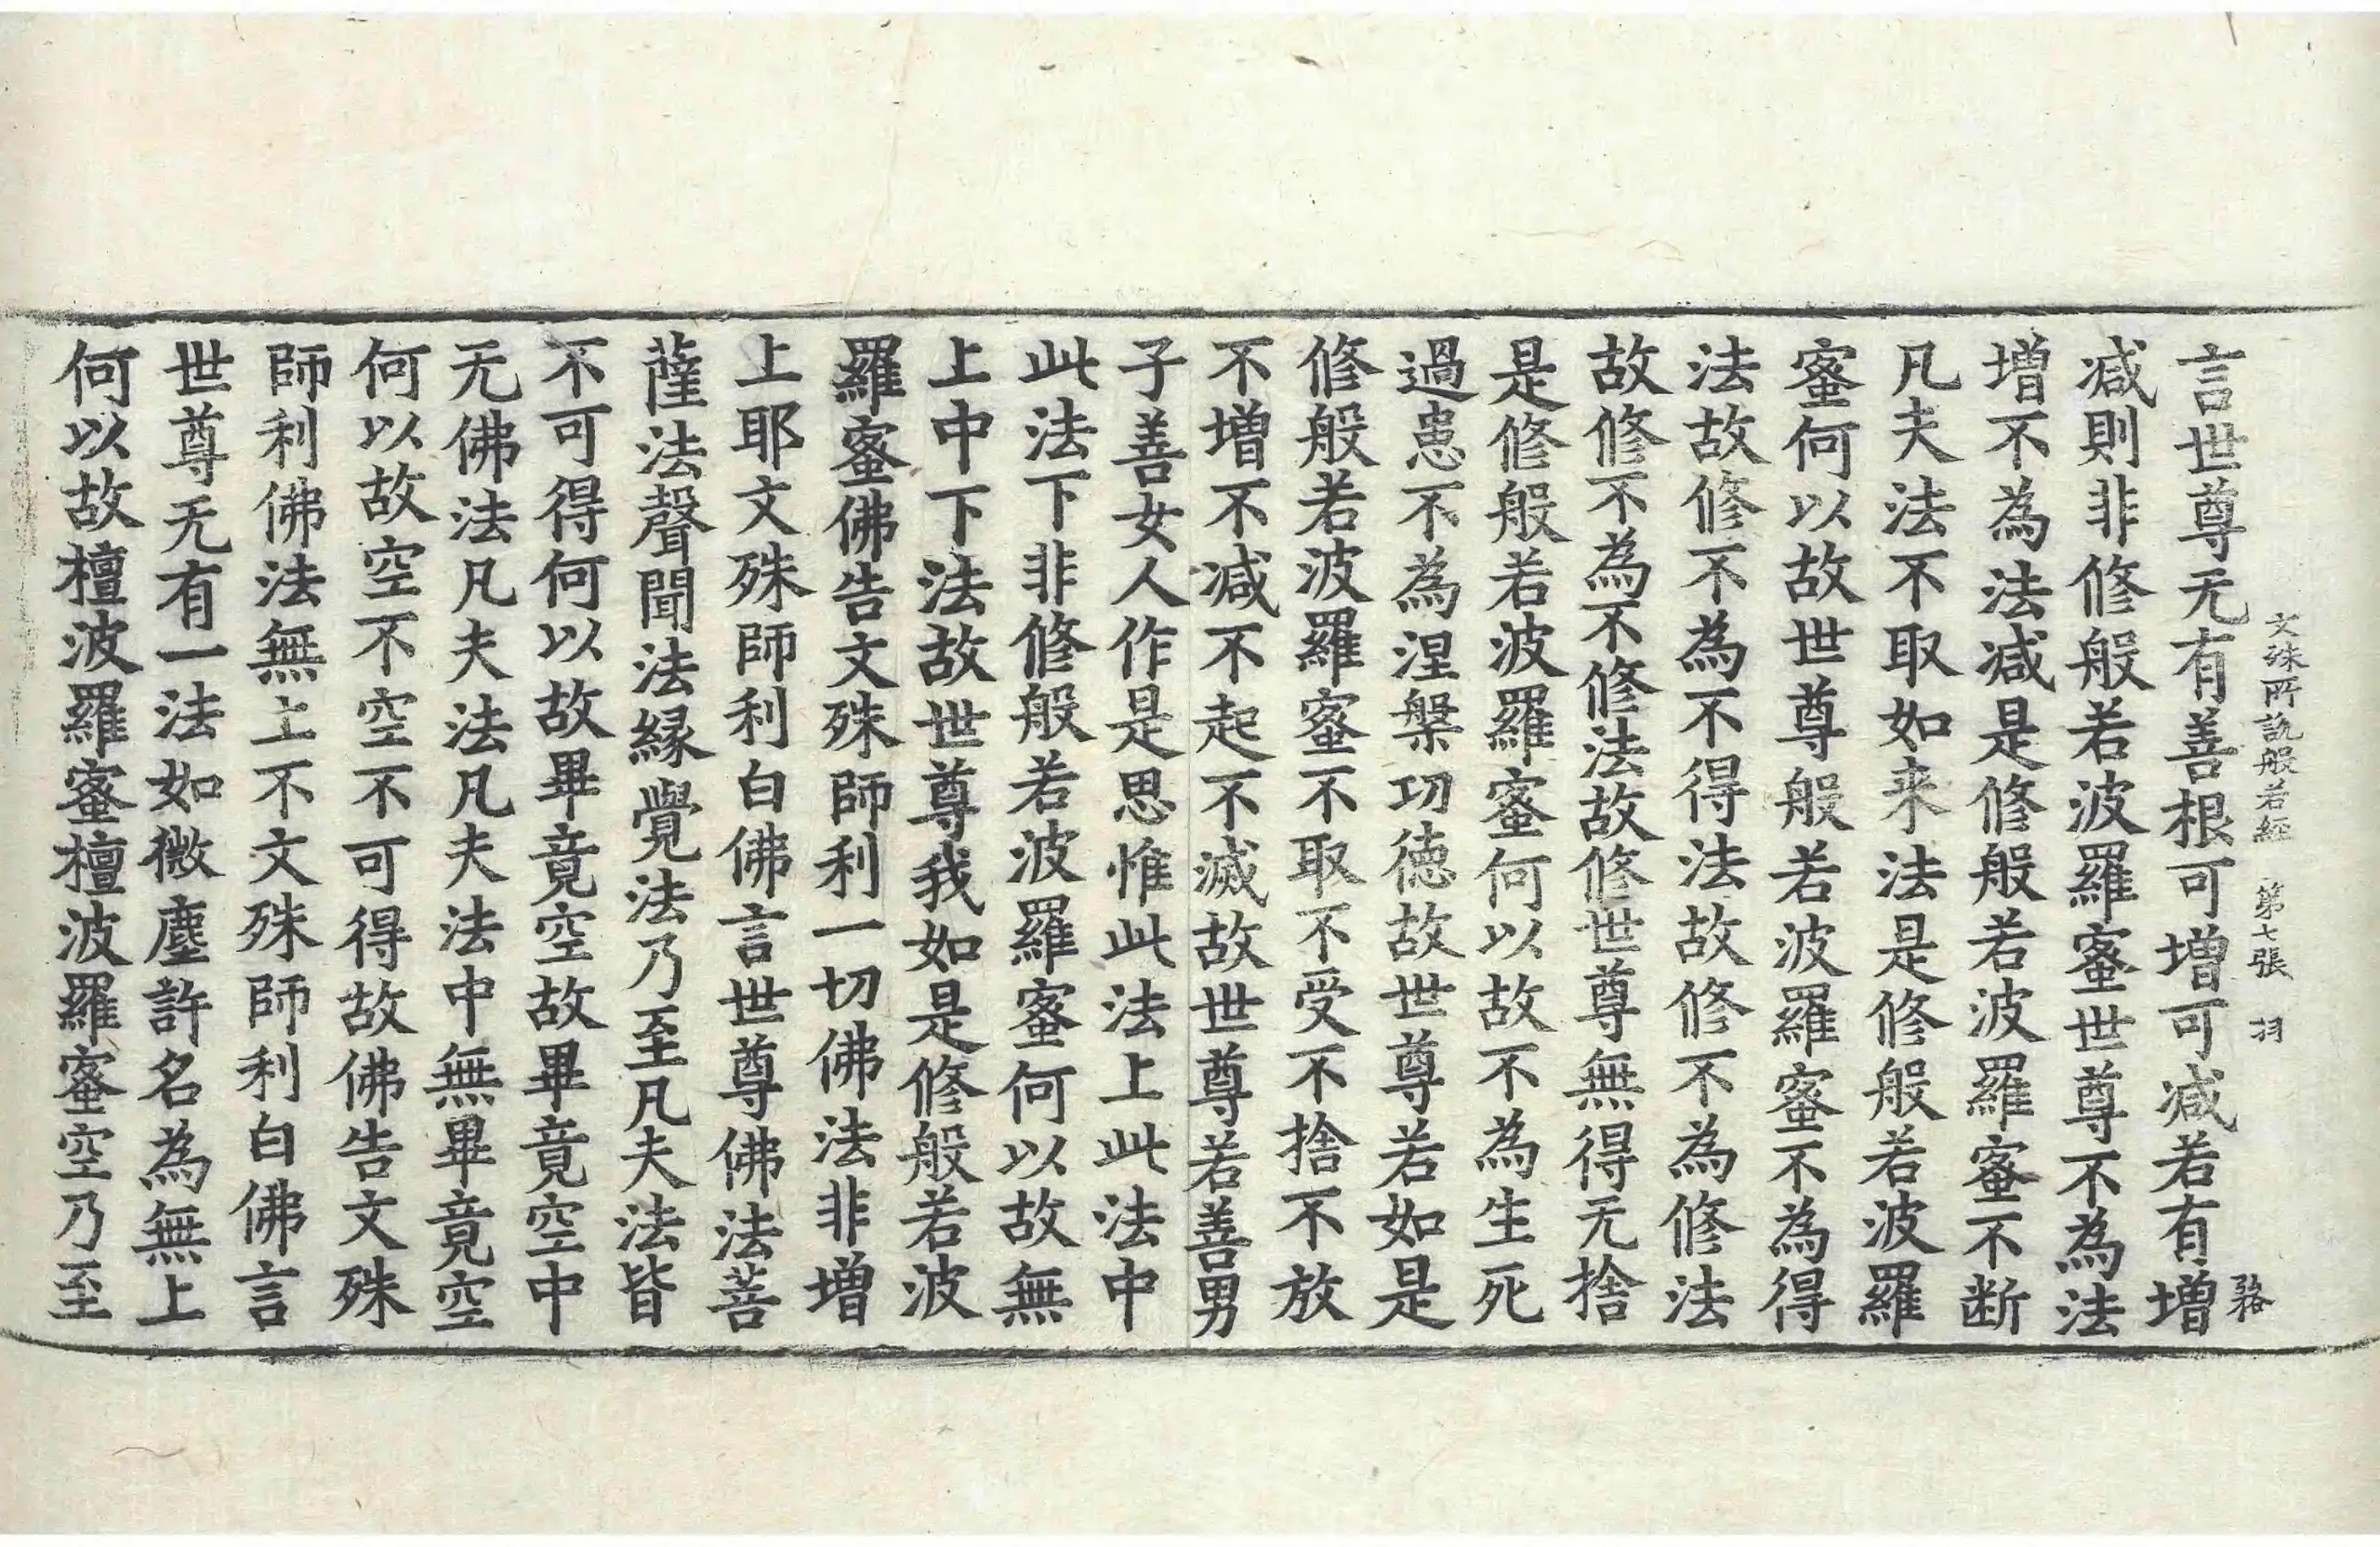 文殊所説般若經 第七張 羽
言世尊无有善根可增可减若有增
减則非修般若波羅蜜世尊不為法
增不為法减是修般若波羅蜜不断
凡夫法不取如来法是修般若波羅
蜜何以故世尊般若波羅蜜不為得
法故修不為不得法故修不為修法
故修不為不修法故修世尊無得无捨
是修般若波羅蜜何以故不為生死
過患不為涅槃功德故世尊若如是
修般若波羅蜜不取不受不捨不放
不增不减不起不滅故世尊若善男
子善女人作是思惟此法上此法中
此法下非修般若波羅蜜何以故無
上中下法故世尊我如是修般若波
羅蜜佛告文殊師利一切佛法非增
上耶文殊師利白佛言世尊佛法菩
薩法聲聞法緣覺法乃至凡夫法皆
不可得何以故畢竟空故畢竟空中
无佛法凡夫法凡夫法中無畢竟空
何以故空不空不可得故佛告文殊
師利佛法無上不文殊師利白佛言
世尊无有一法如微塵許名為無上
何以故檀波羅蜜檀波羅蜜空乃至